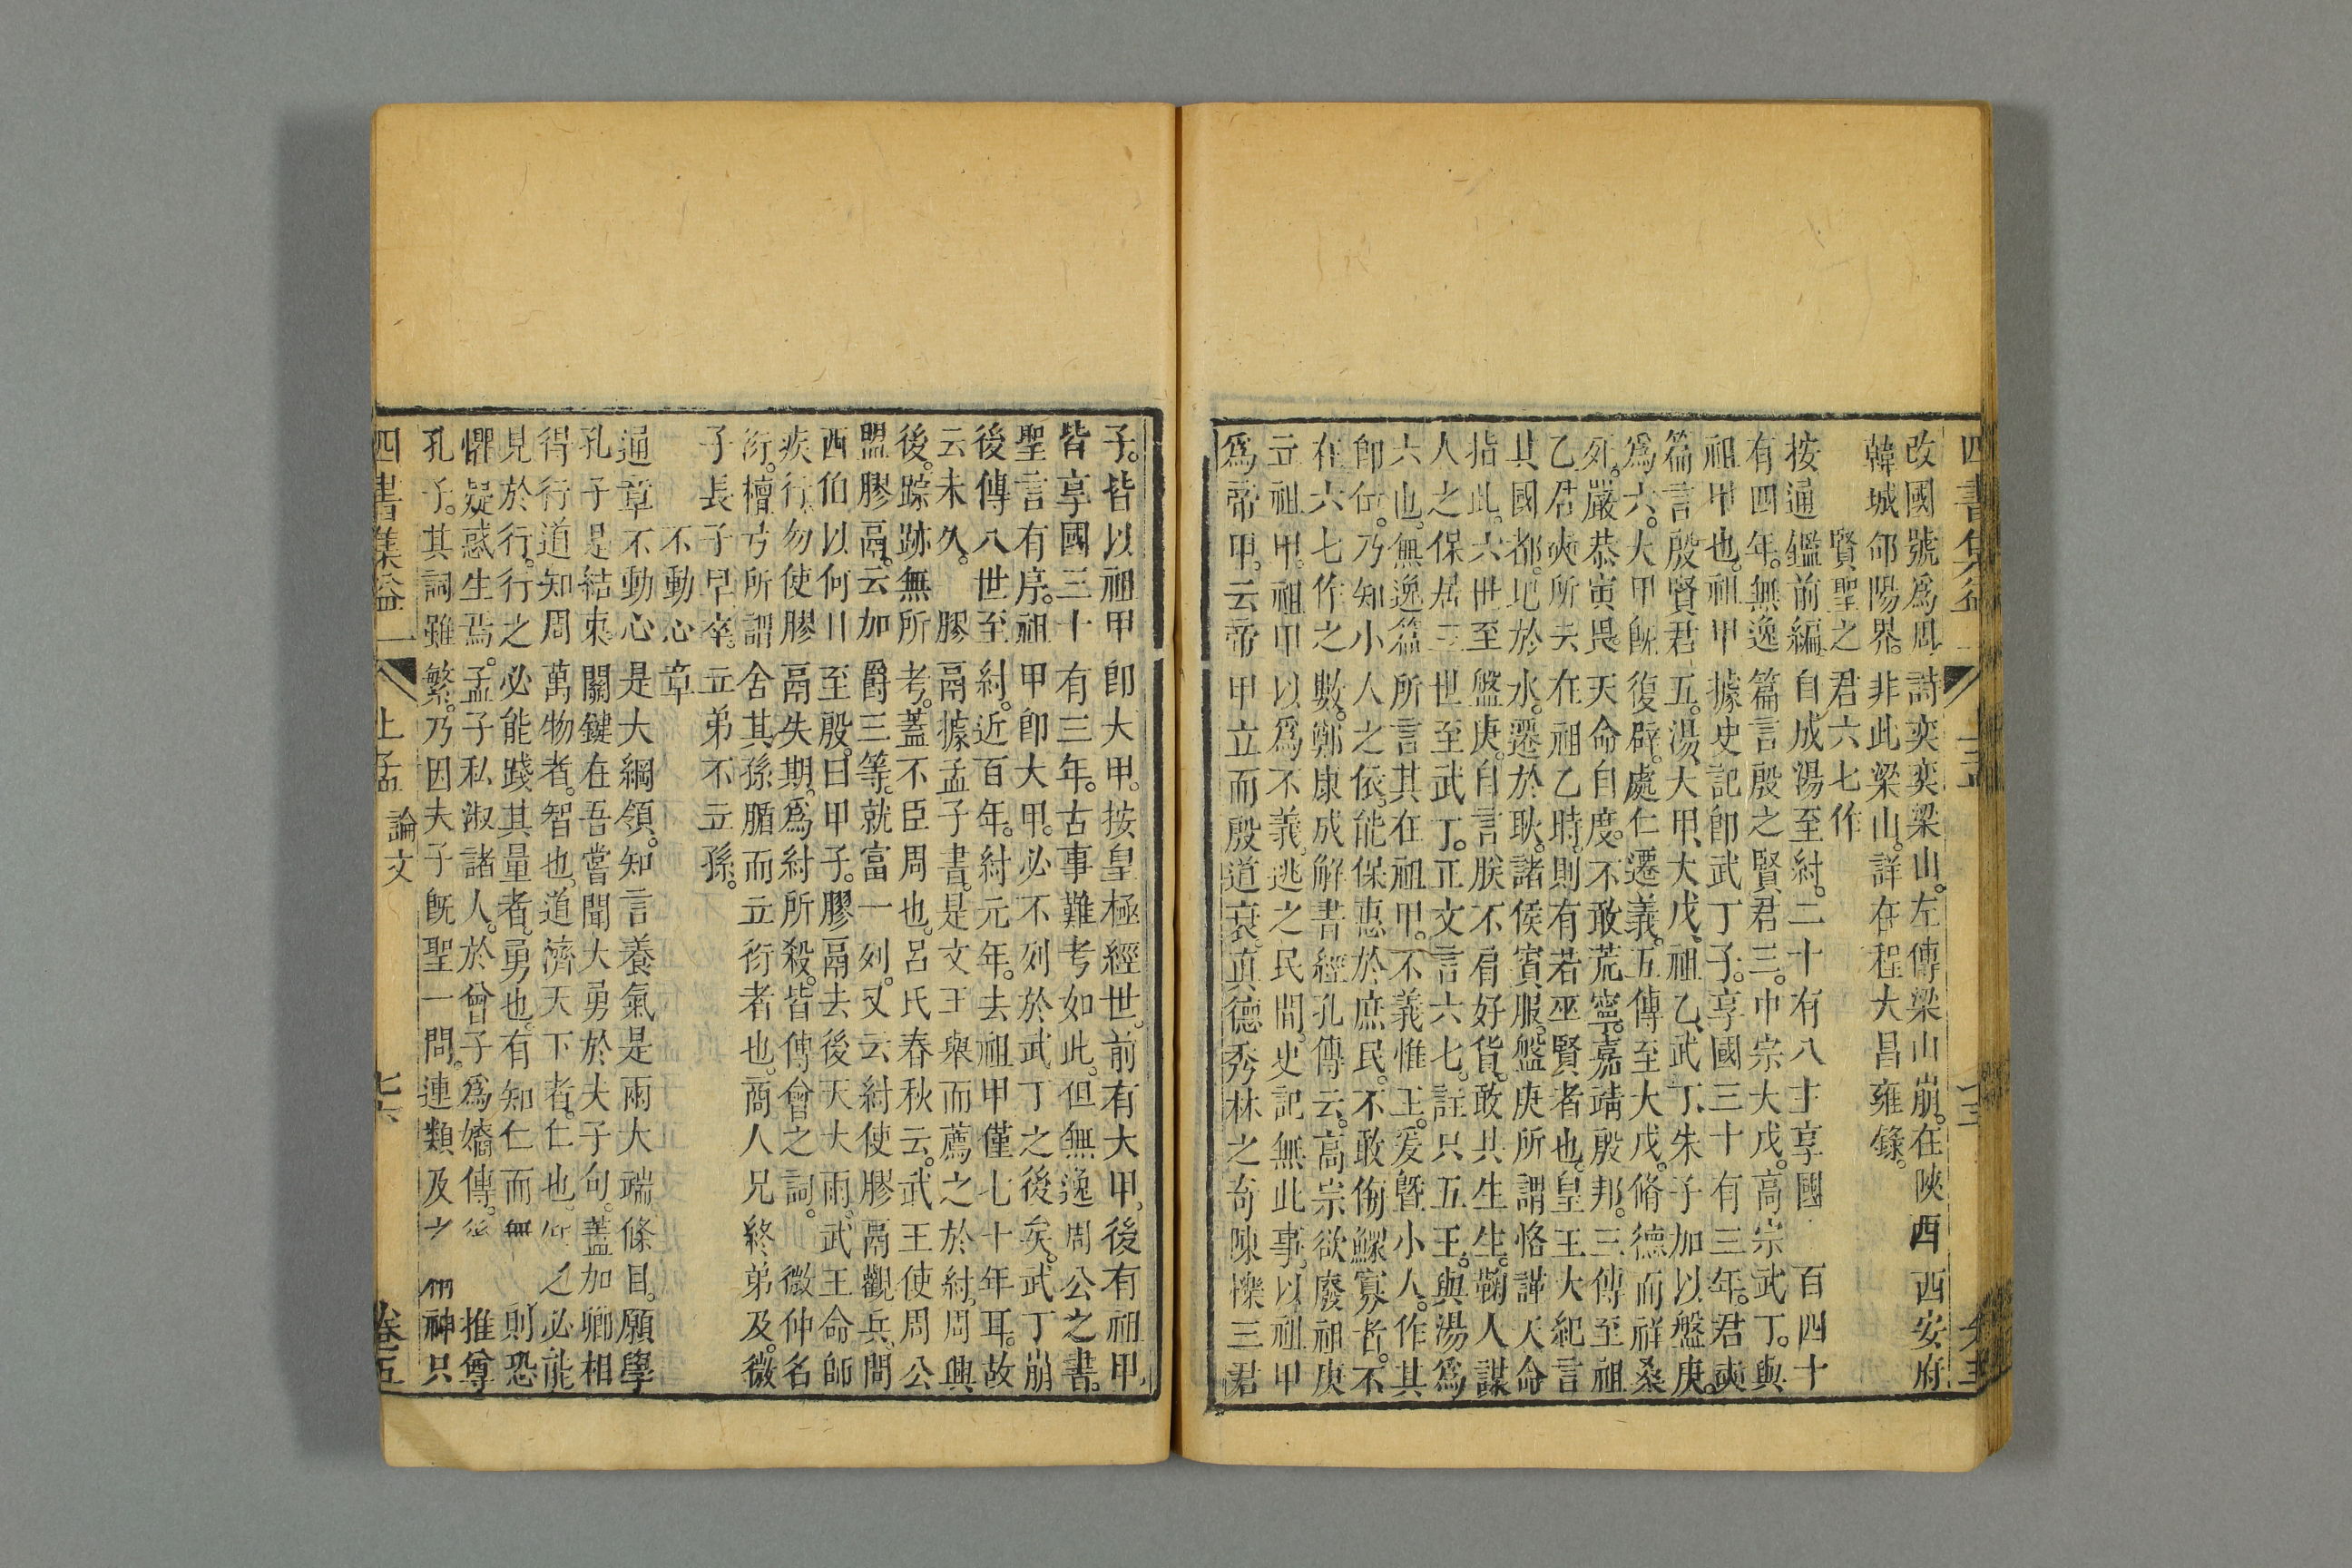 改國號爲周詩奕奕梁山。左傳梁山崩。在陝西西安府
韓城郃陽界。非此梁山。詳在程大昌雍錄。
賢聖之君六七作
按通鑑前編。自成湯至紂。二十有八主享國百四十
有四年。無逸篇言殷之賢君三。中宗大戊。高宗武丁。與
祖甲也。祖甲據史記卽武丁子。享國三十有三年。君奭
篇言殷賢君五。湯、大甲、大戊、祖乙、武丁、朱子加以盤庚。
爲六。大甲旣復辟。處仁遷義。五傳至大戊。脩德而祥桑
死。嚴恭寅畏。天命自度。不敢荒寧。嘉靖殷邦。三傳至祖
乙。君奭所云在祖乙時。則有若巫賢者也。皇王大紀言
其國都。圮於水。遷於耿。諸侯賓服。盤庚所謂恪謹天命
指此。六世至盤庚。自言朕不肩好貨。敢共生生。鞠人謀
人之保居。三世至武丁。正文言六七。註只五王。與湯爲
六也。無逸篇所言其在祖甲。不義惟王。爰曁小人。作其
卽位。乃知小人之依。能保惠於庶民。不敢侮鰥寡者。不
在六七作之數。鄭康成解書經孔傳云。高崇欲廢祖庚
立祖甲。祖甲以爲不義。逃之民間。史記無此事。以祖甲
爲帝甲。云帝甲立而殷道衰。眞德秀林之奇陳櫟三君
子。皆以祖甲卽大甲。按皇極經世。前有大甲。後有祖甲
皆享國三十有三年。古事難考如此。但無逸周公之書。
聖言有序。祖甲卽大甲。必不列於武丁之後矣。武丁崩
後傳八世至紂。近百年。紂元年。去祖甲僅七十年耳。故
云未久。膠鬲據孟子書。是文王舉而薦之於紂。周興
後。踪跡無所考。蓋不臣周也。呂氏春秋云。武王使周公
盟膠鬲。云加爵三等。就富一列。又云紂使膠鬲觀兵。問
西伯以何日至殷。曰甲子。膠鬲去後天大雨。武王命師
疾行。勿使膠鬲失期。爲紂所殺。皆傅會之詞。微仲名
衍。檀弓所謂舍其孫腯而立衍者也。商人兄終弟及。微
子長子早卒。立弟不立孫。
不動心章
通章不動心是大綱領。知言養氣是兩大端條目。願學
孔子是結束關鍵在吾嘗聞大勇於夫子句。蓋加卿相
得行道知周萬物者。智也。道濟天下者。仁也。之必能
見於行。行之必能踐其量者。勇也。有知仁而無則恐
懼疑惑生焉。孟子私淑諸人。於曾子爲嫡傳。推尊
孔子。其詞雖繁。乃因夫子旣聖一問。連類及之神只
四書集益 上孟 論文 七六 卷五